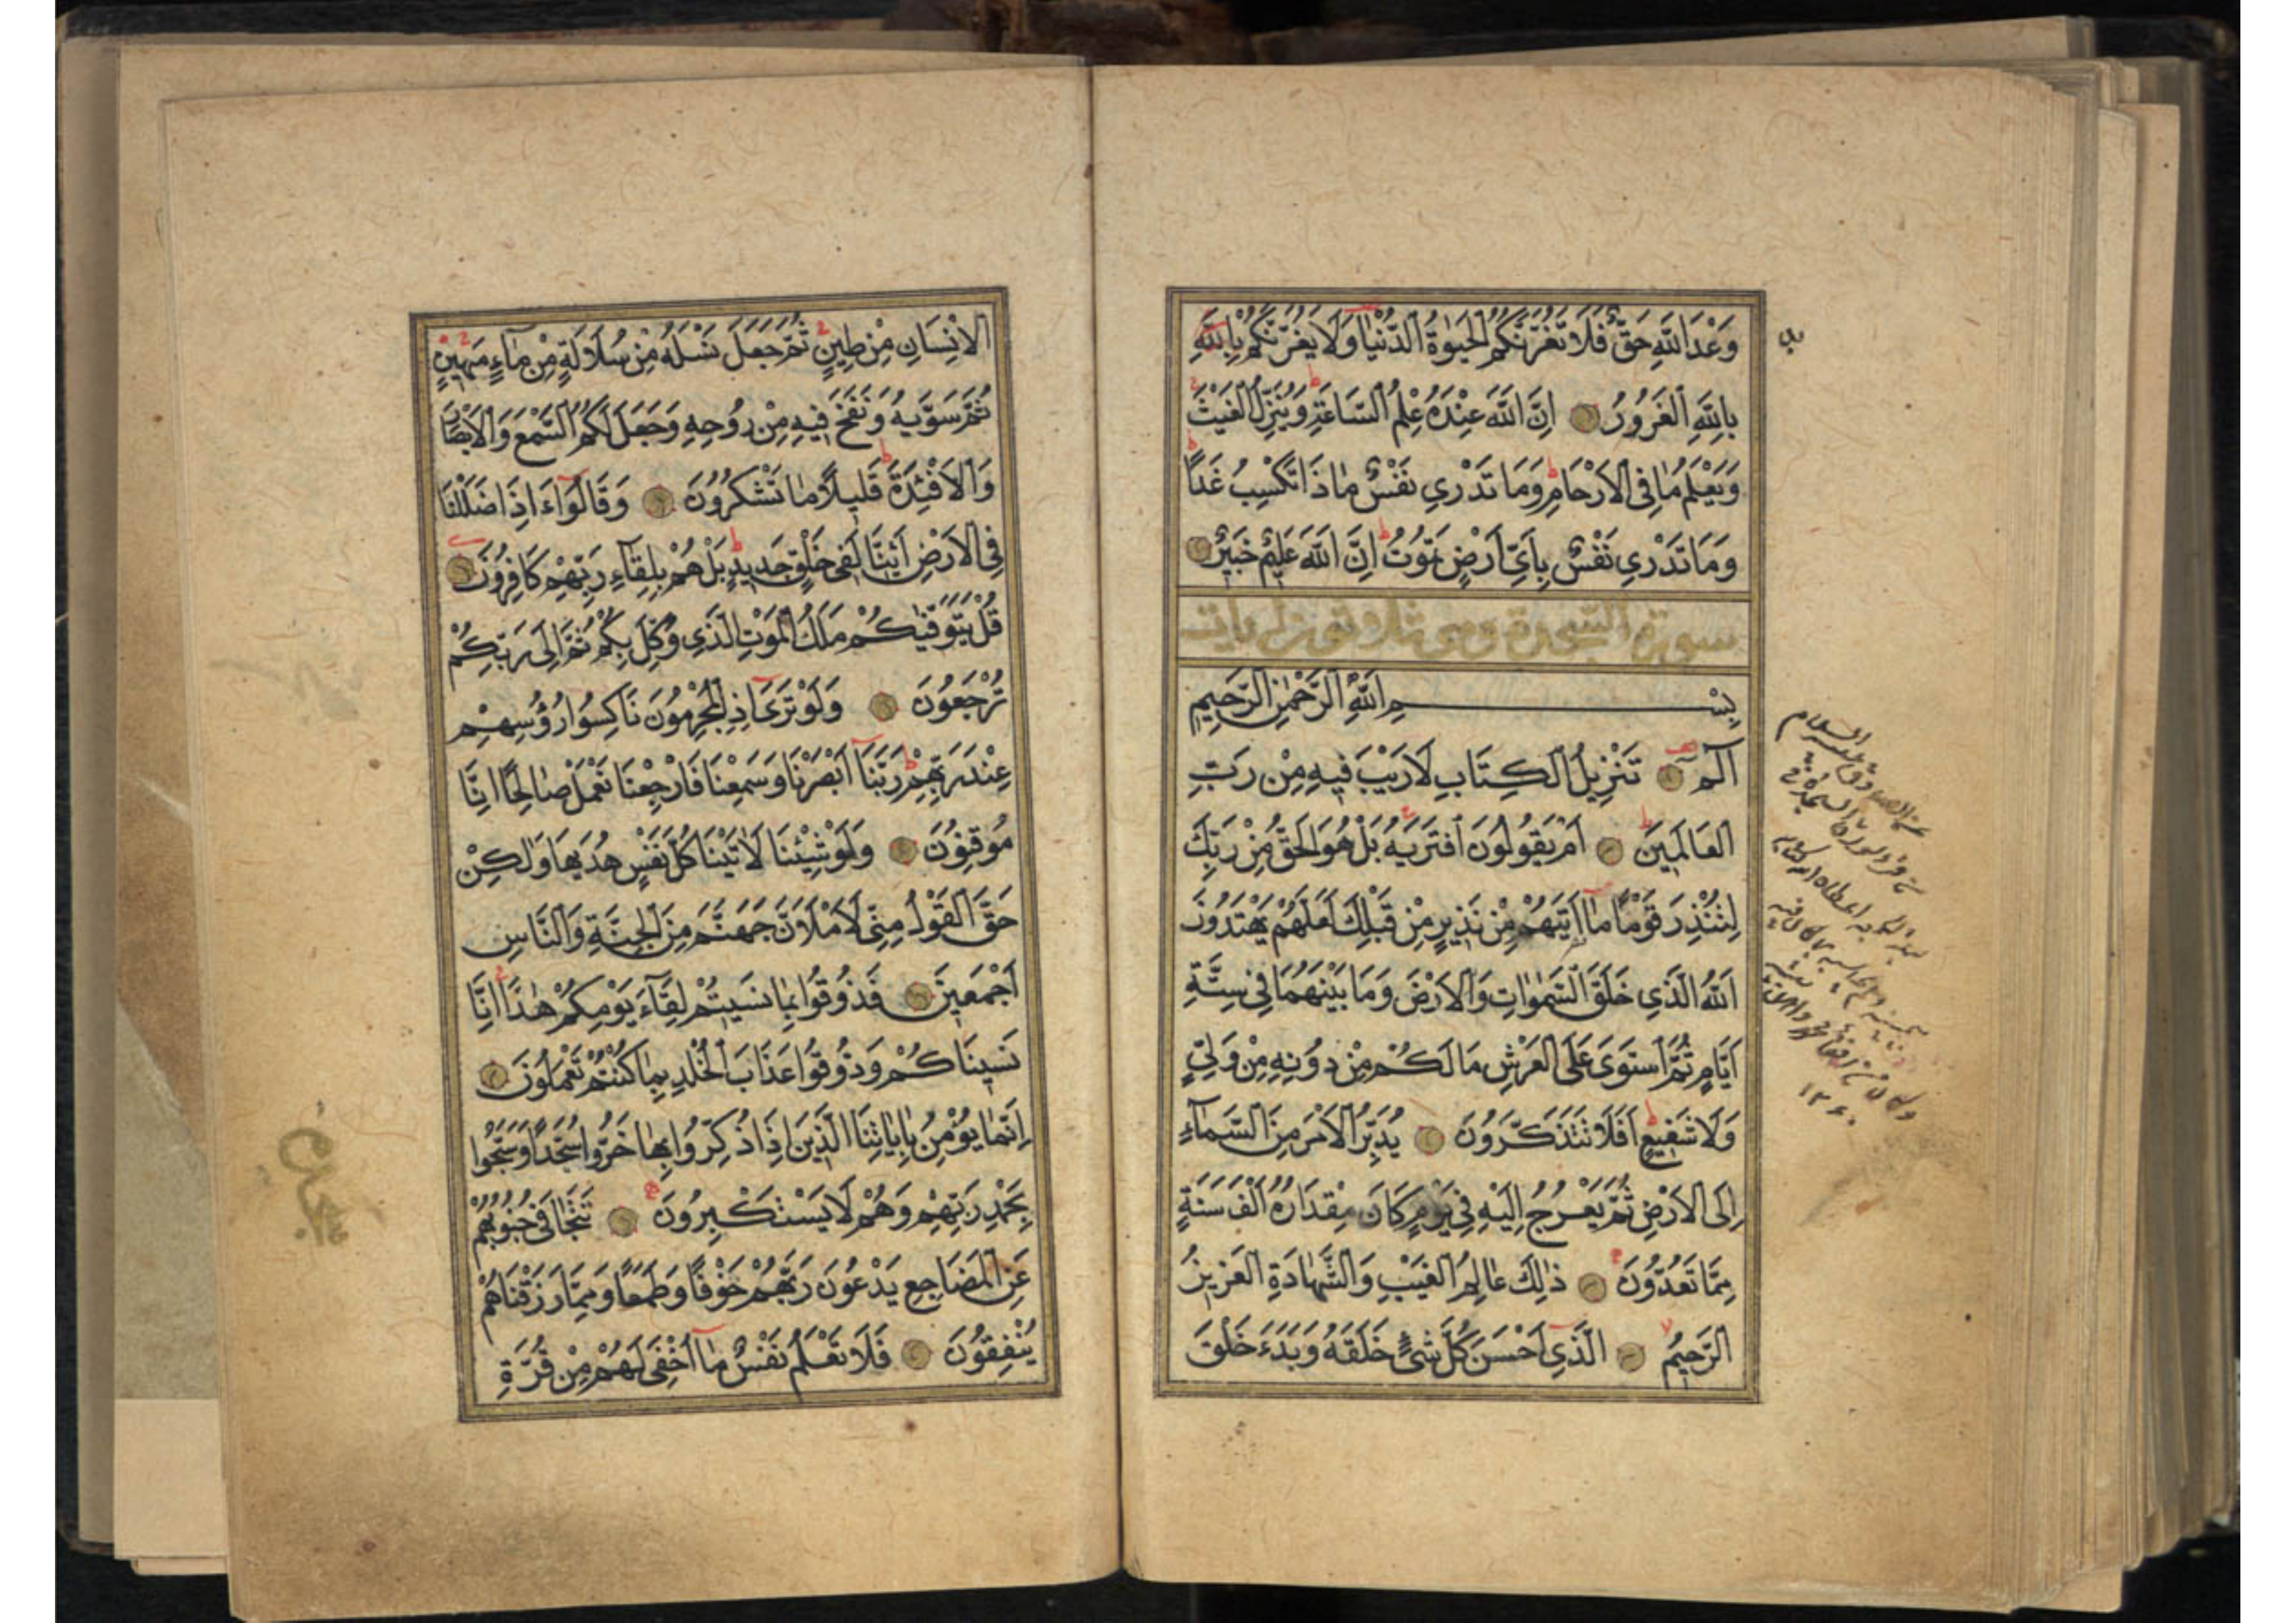 وَعْدَ اللَّهِ حَقٌّ فَلَا تَغُرَّنَّكُمُ الْحَيٰوةُ الدُّنْيَا وَلَا يَغُرَّنَّكُمْ بِاللَّهِ
بِاللَّهِ الْغَرُورُ اِنَّ اللَّهَ عِنْدَهُ عِلْمُ السَّاعَةِ وَيُنَزِّلُ الْغَيْثَ
وَيَعْلَمُ مَا فِي الْاَرْحَامِ وَمَا تَدْرِي نَفْسٌ مَاذَا تَكْسِبُ غَدًا
وَمَا تَدْرِي نَفْسٌ بِاَيِّ اَرْضٍ تَمُوتُ اِنَّ اللَّهَ عَلِيمٌ خَبِيرٌ
سورة السجدة وهي ثلاثون آيات
بِسْمِ اللَّهِ الرَّحْمٰنِ الرَّحِيمِ
الٓمٓ تَنْزِيلُ الْكِتَابِ لَا رَيْبَ فِيهِ مِنْ رَبِّ
الْعَالَمِينَ اَمْ يَقُولُونَ افْتَرَيٰهُ بَلْ هُوَ الْحَقُّ مِنْ رَبِّكَ
لِتُنْذِرَ قَوْمًا مَا اَتٰيهُمْ مِنْ نَذِيرٍ مِنْ قَبْلِكَ لَعَلَّهُمْ يَهْتَدُونَ
اَللَّهُ الَّذِي خَلَقَ السَّمٰوَاتِ وَالْاَرْضَ وَمَا بَيْنَهُمَا فِي سِتَّةِ
اَيَّامٍ ثُمَّ اسْتَوَى عَلَى الْعَرْشِ مَا لَكُمْ مِنْ دُونِهِ مِنْ وَلِيٍّ
وَلَا شَفِيعٍ اَفَلَا تَتَذَكَّرُونَ يُدَبِّرُ الْاَمْرَ مِنَ السَّمَآءِ
اِلَى الْاَرْضِ ثُمَّ يَعْرُجُ اِلَيْهِ فِي يَوْمٍ كَانَ مِقْدَارُهُ اَلْفَ سَنَةٍ
مِمَّا تَعُدُّونَ ذٰلِكَ عَالِمُ الْغَيْبِ وَالشَّهَادَةِ الْعَزِيزُ
الرَّحِيمُ الَّذِي اَحْسَنَ كُلَّ شَيْءٍ خَلَقَهُ وَبَدَءَ خَلْقَ
الْاِنْسَانِ مِنْ طِينٍ ثُمَّ جَعَلَ نَسْلَهُ مِنْ سُلَالَةٍ مِنْ مَآءٍ مَهِينٍ
ثُمَّ سَوّٰيهُ وَنَفَخَ فِيهِ مِنْ رُوحِهِ وَجَعَلَ لَكُمُ السَّمْعَ وَالْاَبْصَارَ
وَالْاَفْئِدَةَ قَلِيلًا مَا تَشْكُرُونَ وَقَالُوا ءَاِذَا ضَلَلْنَا
فِي الْاَرْضِ اَئِنَّا لَفِي خَلْقٍ جَدِيدٍ بَلْ هُمْ بِلِقَآءِ رَبِّهِمْ كَافِرُونَ
قُلْ يَتَوَفّٰيكُمْ مَلَكُ الْمَوْتِ الَّذِي وُكِّلَ بِكُمْ ثُمَّ اِلَى رَبِّكُمْ
تُرْجَعُونَ وَلَوْ تَرَى اِذِ الْمُجْرِمُونَ نَاكِسُوا رُؤُسِهِمْ
عِنْدَ رَبِّهِمْ رَبَّنَا اَبْصَرْنَا وَسَمِعْنَا فَارْجِعْنَا نَعْمَلْ صَالِحًا اِنَّا
مُوقِنُونَ وَلَوْ شِئْنَا لَاٰتَيْنَا كُلَّ نَفْسٍ هُدٰيهَا وَلٰكِنْ
حَقَّ الْقَوْلُ مِنِّي لَاَمْلَاَنَّ جَهَنَّمَ مِنَ الْجِنَّةِ وَالنَّاسِ
اَجْمَعِينَ فَذُوقُوا بِمَا نَسِيتُمْ لِقَآءَ يَوْمِكُمْ هٰذَا اِنَّا
نَسِينَاكُمْ وَذُوقُوا عَذَابَ الْخُلْدِ بِمَا كُنْتُمْ تَعْمَلُونَ
اِنَّمَا يُؤْمِنُ بِاٰيَاتِنَا الَّذِينَ اِذَا ذُكِّرُوا بِهَا خَرُّوا سُجَّدًا وَسَبَّحُوا
بِحَمْدِ رَبِّهِمْ وَهُمْ لَا يَسْتَكْبِرُونَ تَتَجَافَى جُنُوبُهُمْ
عَنِ الْمَضَاجِعِ يَدْعُونَ رَبَّهُمْ خَوْفًا وَطَمَعًا وَمِمَّا رَزَقْنَاهُمْ
يُنْفِقُونَ فَلَا تَعْلَمُ نَفْسٌ مَا اُخْفِيَ لَهُمْ مِنْ قُرَّةِ